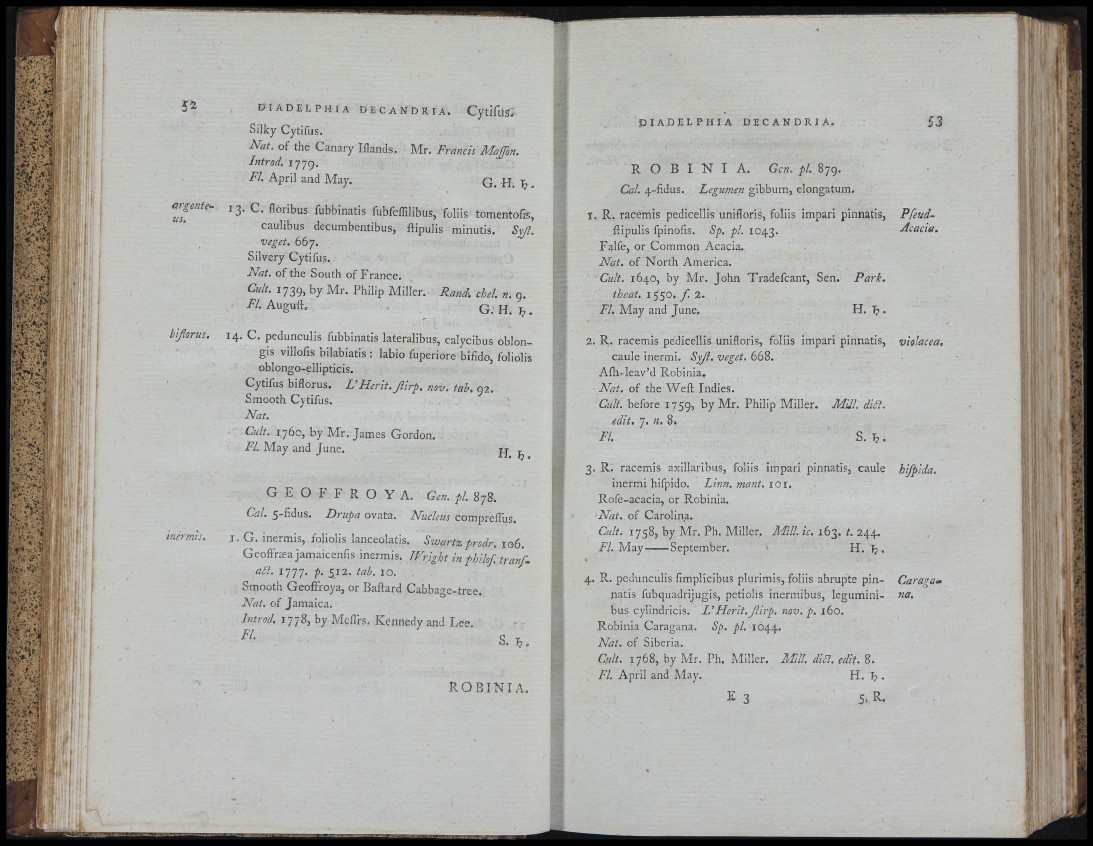 52 DIADELPHIA DECANDRIA. Cytiſus.
Silky Cytiſus.
Nat. of the Canary Iſlands. Mr. Francis Maſſon.
Introd. 1779.
Fl. April and May. G. H. ♄.
argente- 13. C. floribus ſubbinatis ſubſeſſilibus, foliis tomentoſis,
us. caulibus decumbentibus, ſtipulis minutis. Syſt.
veget. 667.
Silvery Cytiſus.
Nat. of the South of France.
Cult. 1739, by Mr. Philip Miller. Rand. chel. n. 9.
Fl. Auguſt. G. H. ♄.
biflorus. 14. C. pedunculis ſubbinatis lateralibus, calycibus oblon-
gis villoſis bilabiatis: labio ſuperiore bifido, foliolis
oblongo-ellipticis.
Cytiſus biflorus. L'Herit. ſtirp. nov. tab. 92.
Smooth Cytiſus.
Nat.
Cult. 1760, by Mr. James Gordon.
Fl. May and June. H. ♄.
GEOFFROYA. Gen. pl. 878.
Cal. 5-fidus. Drupa ovata. Nucleus compreſſus.
inermis. 1. G. inermis, foliolis lanceolatis. Swartz prodr. 106.
Geoffræa jamaicenſis inermis. Wright in philoſ. tranſ-
act. 1777. p. 512. tab. 10.
Smooth Geoffroya, or Baſtard Cabbage-tree.
Nat. of Jamaica.
Introd. 1778, by Meſſrs. Kennedy and Lee.
Fl. S. ♄.
ROBINIA.
DIADELPHIA DECANDRIA. 53
ROBINIA. Gen. pl. 879.
Cal. 4-fidus. Legumen gibbum, elongatum.
1. R. racemis pedicellis unifloris, foliis impari pinnatis, Pſeud-
ſtipulis ſpinoſis. Sp. pl. 1043. Acacia.
Falſe, or Common Acacia.
Nat. of North America.
Cult. 1640, by Mr. John Tradeſcant, Sen. Park.
theat. 1550. f. 2.
Fl. May and June. H. ♄.
2. R. racemis pedicellis unifloris, foliis impari pinnatis, violacea.
caule inermi. Syſt. veget. 668.
Aſh-leav'd Robinia.
Nat. of the Weſt Indies.
Cult. before 1759, by Mr. Philip Miller. Mill. dict.
edit. 7. n. 8.
Fl. S. ♄.
3. R. racemis axillaribus, foliis impari pinnatis, caule hiſpida.
inermi hiſpido. Linn. mant. 101.
Roſe-acacia, or Robinia.
Nat. of Carolina.
Cult. 1758, by Mr. Ph. Miller. Mill. ic. 163. t. 244.
Fl. May——September. H. ♄.
4. R. pedunculis ſimplicibus plurimis, foliis abrupte pin- Caraga-
natis ſubquadrijugis, petiolis inermibus, legumini- na.
bus cylindricis. L'Herit. ſtirp. nov. p. 160.
Robinia Caragana. Sp. pl. 1044.
Nat. of Siberia.
Cult. 1768, by Mr. Ph. Miller. Mill. dict. edit. 8.
Fl. April and May. H. ♄.
E 3 5. R.